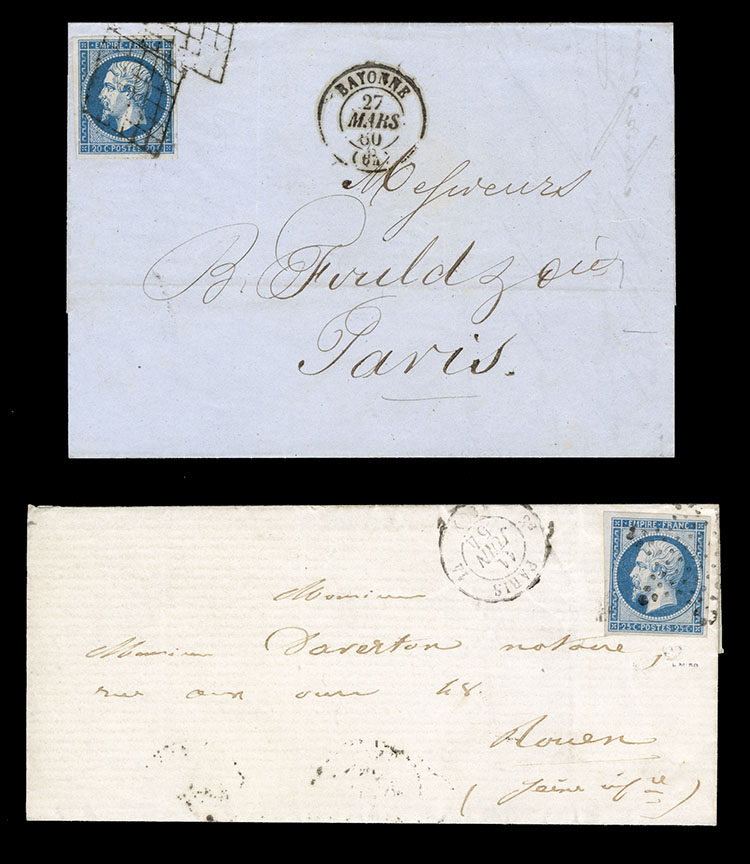 EMPIRE FRANC
20 C POSTES 20 C
BAYONNE
27
MARS
60
(64)
Messieurs
B. Fould &
Paris.
EMPIRE FRANC
25 C POSTES 25 C
PARIS
11
JUIN
54
Monsieur
Monsieur Daverton notaire,
rue aux ours 48.
Rouen
(Seine infre)